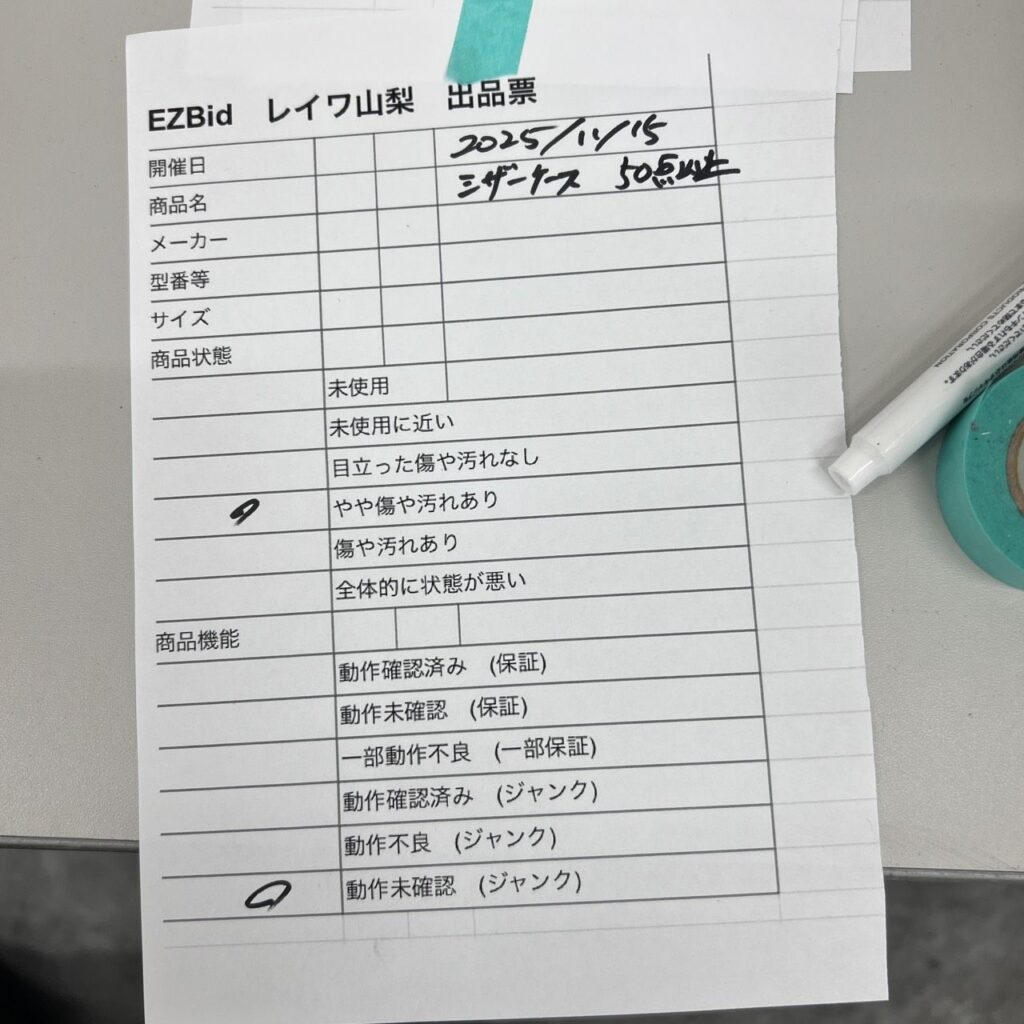 EZBid レイワ山梨 出品票
開催日 2025/11/15
商品名 シザーケース 50点以上
メーカー
型番等
サイズ
商品状態
未使用
未使用に近い
目立った傷や汚れなし
やや傷や汚れあり
傷や汚れあり
全体的に状態が悪い
商品機能
動作確認済み (保証)
動作未確認 (保証)
一部動作不良 (一部保証)
動作確認済み (ジャンク)
動作不良 (ジャンク)
動作未確認 (ジャンク)